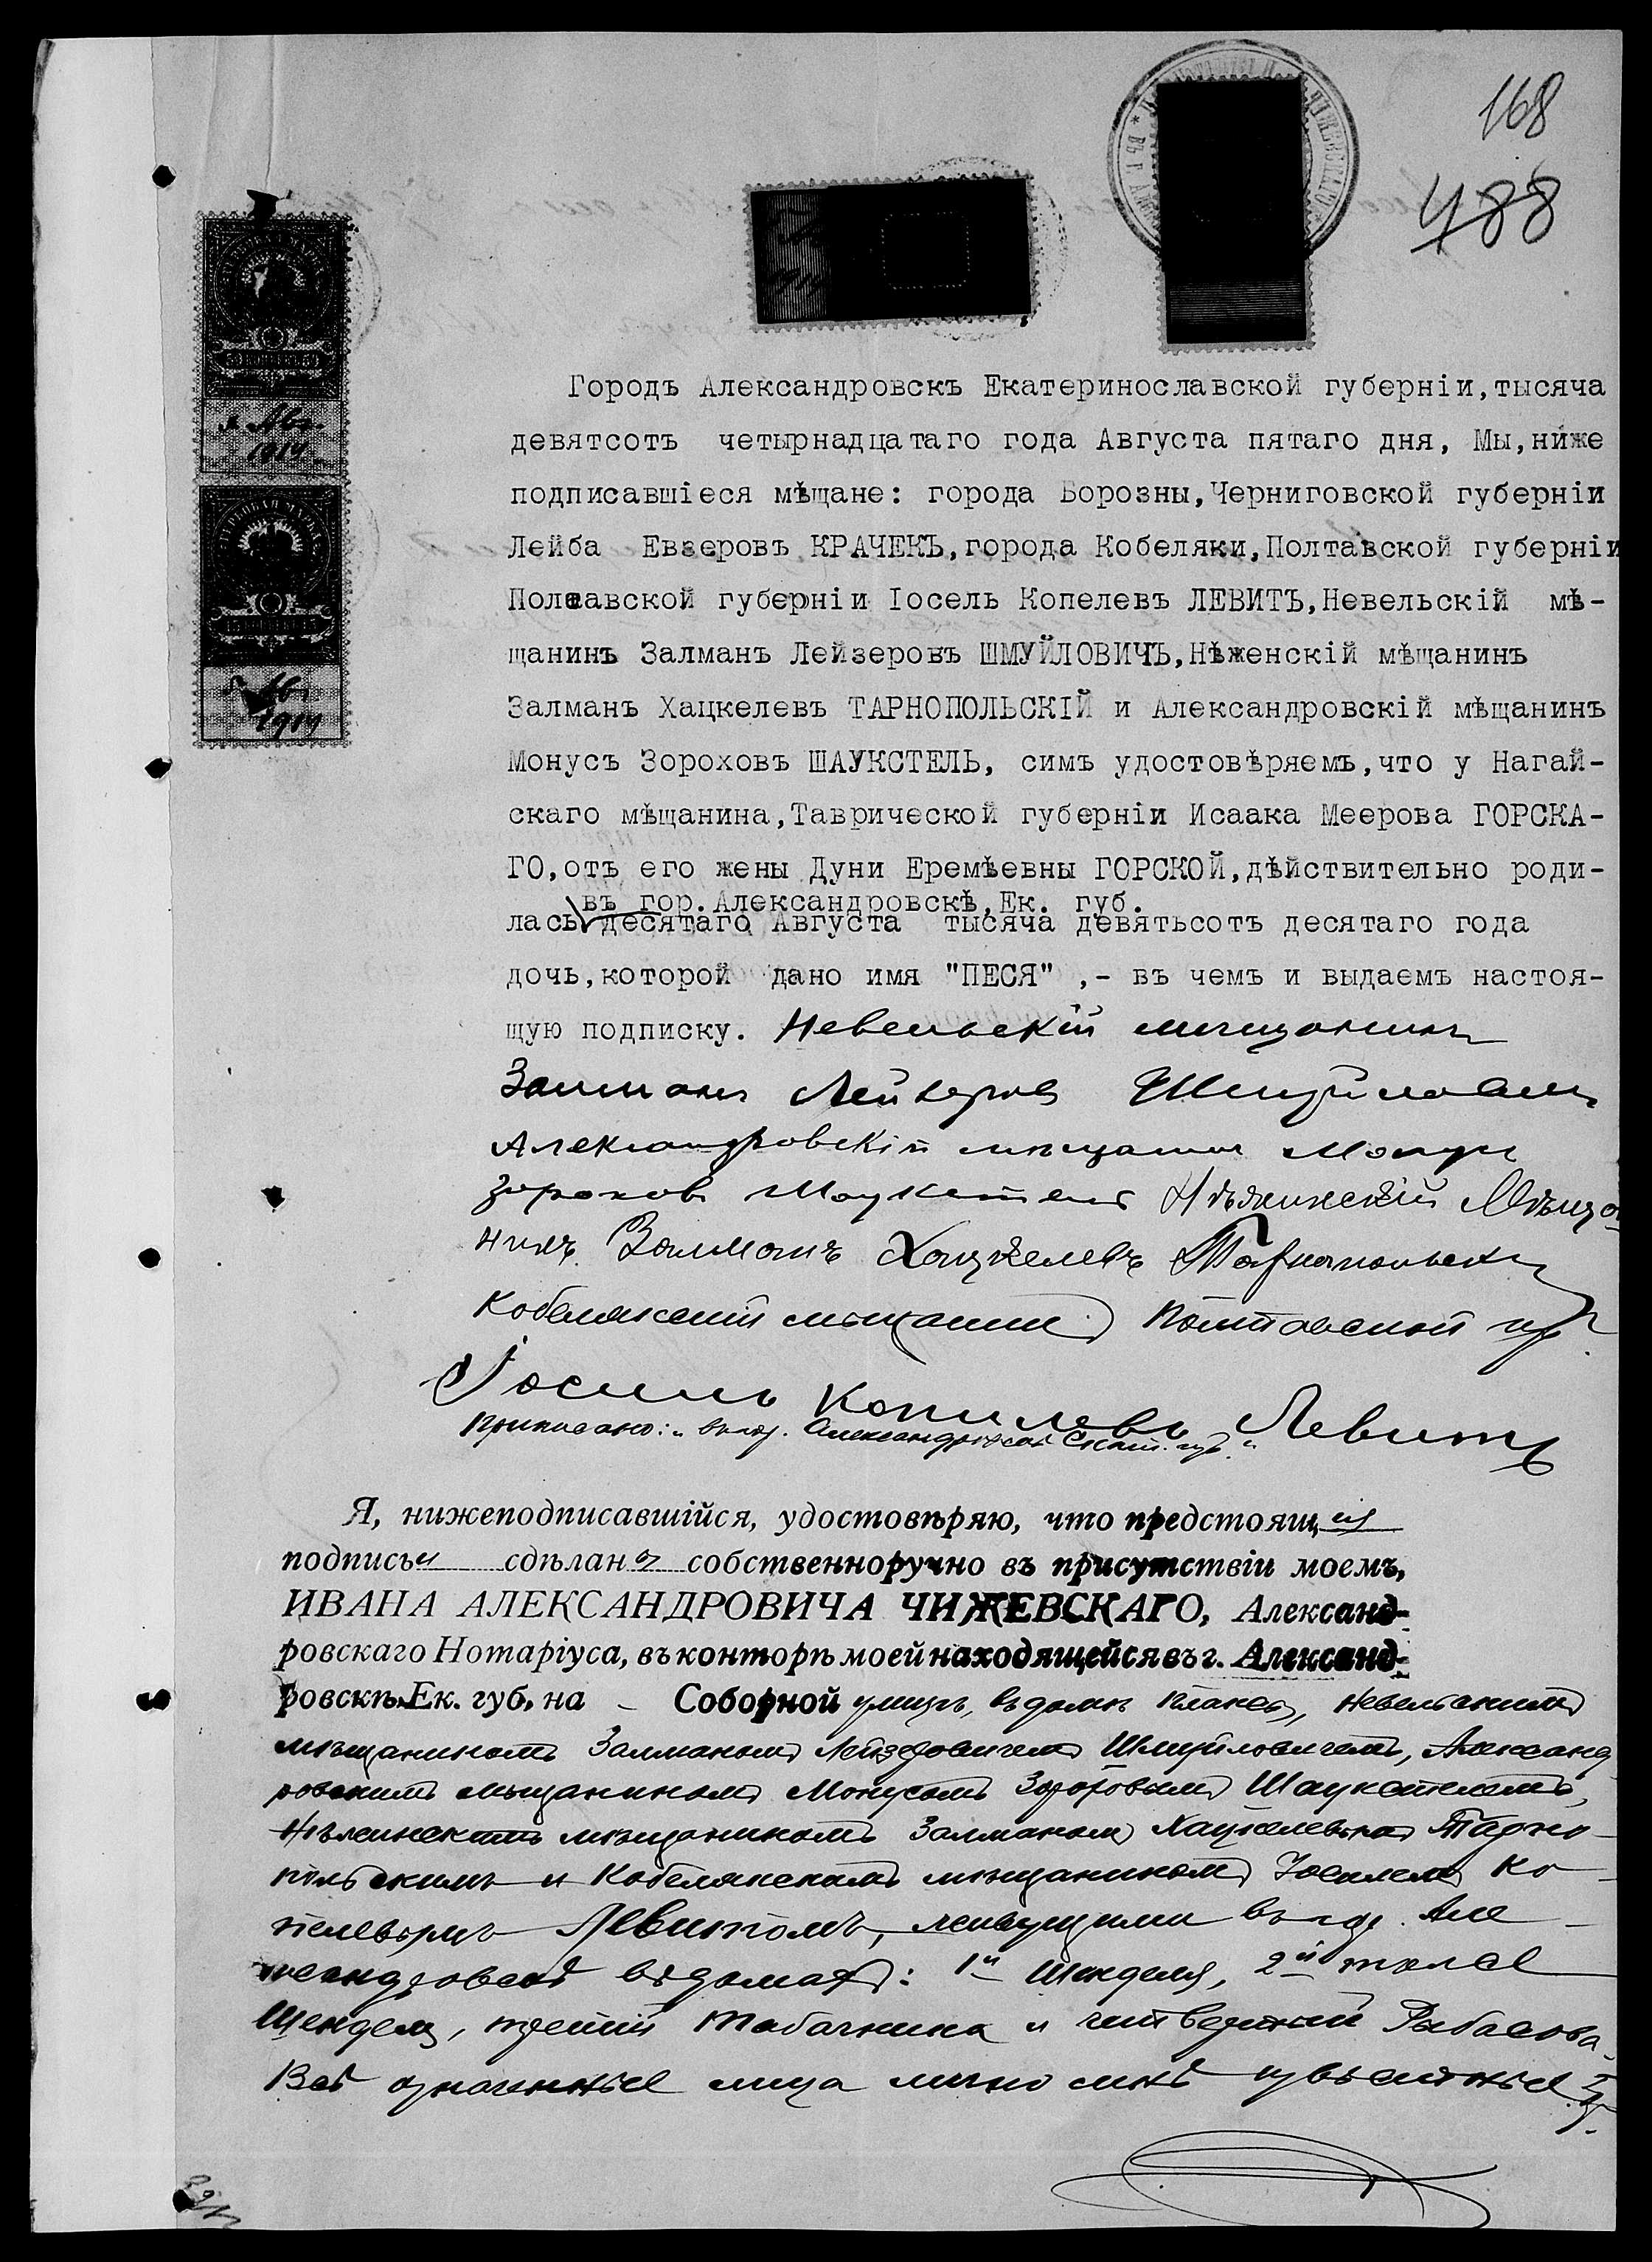 168
488
50 КОПѢЕКЪ 50
Авг.
1914
1914
Городъ Александровскъ Екатеринославской губерніи,тысяча
девятсотъ четырнадцатаго года Августа пятаго дня, Мы,ниже
подписавшіеся мѣщане: города Борозны,Черниговской губерніи
Лейба Евзеровъ КРАЧЕКЪ,города Кобеляки,Полтавской губерніи
Полтавской губерніи Іосель Копелевъ ЛЕВИТЪ,Невельскій мѣ-
щанинъ Залманъ Лейзеровъ ШМУЙЛОВИЧЪ,Нѣженскій мѣщанинъ
Залманъ Хацкелевъ ТАРНОПОЛЬСКІЙ и Александровскій мѣщанинъ
Монусъ Зороховъ ШАУКСТЕЛЬ, симъ удостовѣряемъ,что у Нагай-
скаго мѣщанина,Таврической губерніи Исаака Меерова ГОРСКА-
ГО,отъ его жены Дуни Еремѣевны ГОРСКОЙ,дѣйствительно роди-
въ гор.Александровскѣ,Ек. губ.
лась десятаго Августа тысяча девятьсотъ десятаго года
дочь,которой дано имя "ПЕСЯ" ,- въ чемъ и выдаемъ настоя-
щую подписку. Невельскій мещанинъ
Залманъ Лейзеров Шмуйловичъ
Александровскій мѣщанин Монус
Зорохов Шаукстель Нѣжинскій Мѣща
нинъ Залманъ Хацкелевъ Тарнопольски
Кобелякский мѣщанинъ Полтавской губ
Іосель Копилевъ Левитъ
Приписано: "въ гор. Александровскѣ Екат. губ."
Я, нижеподписавшійся, удостовѣряю, что предстоящія
подписьи сдѣлана собственноручно въ присутствіи моемъ,
ИВАНА АЛЕКСАНДРОВИЧА ЧИЖЕВСКАГО, Александ-
ровскаго Нотаріуса, въ конторѣ моей находящейся въ г. Александ-
ровскѣ, Ек. губ, на – Соборной улицѣ, въ домѣ Невельскимъ
мѣщаниномъ Залманомъ Лейзеровичемъ Шмуйловичемъ, Александ
ровскимъ мѣщаниномъ Монусомъ Зороховымъ Шаукстелемъ,
Нѣжинскимъ мѣщаниномъ Залманомъ Хацкелевымъ Тарно-
польскимъ и Кобелякскимъ мѣщаниномъ Іоселемъ Ко-
пелевымъ Левитомъ, живущими въ гор. Але-
ксандровскѣ въ домахъ: 1й Шенделя, 2й тоже
Шенделя, третій Табачника и четвертый Рабасова.
Всѣ означенные лица лично мнѣ извѣстные